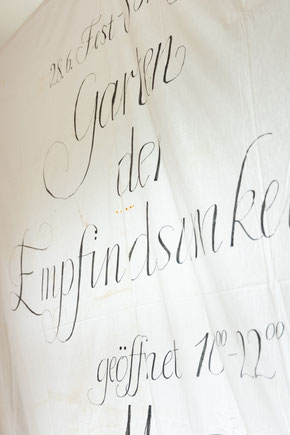 28.6. Fest-
Garten
der
Empfindsamke
geöffnet 10⁰⁰-22⁰⁰